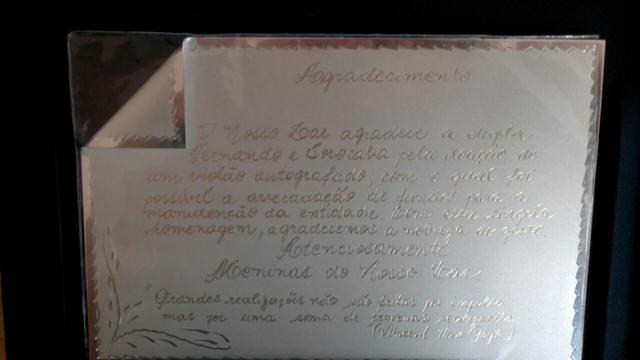 Agradecimento
O Nosso Lar agradece a dupla
Fernando e Sorocaba pela doação de
um violão autografado, com o qual foi
possível a arrecadação de fundos para a
manutenção da entidade. Com esta singela
homenagem, agradecemos a nobreza do gesto.
Atenciosamente
Meninas do Nosso Lar
"Grandes realizações não são feitas por impulso
mas por uma soma de pequenas realizações"
(Vincent Van Gogh)